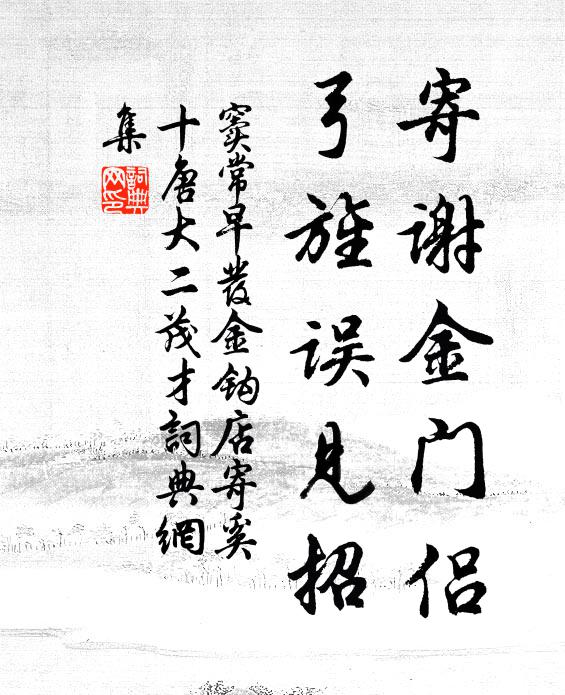 寄谢金门侣
弓旌误见招
窦常早发金钩店寄奚
十唐大二茂才詞典網
集
詞典網印